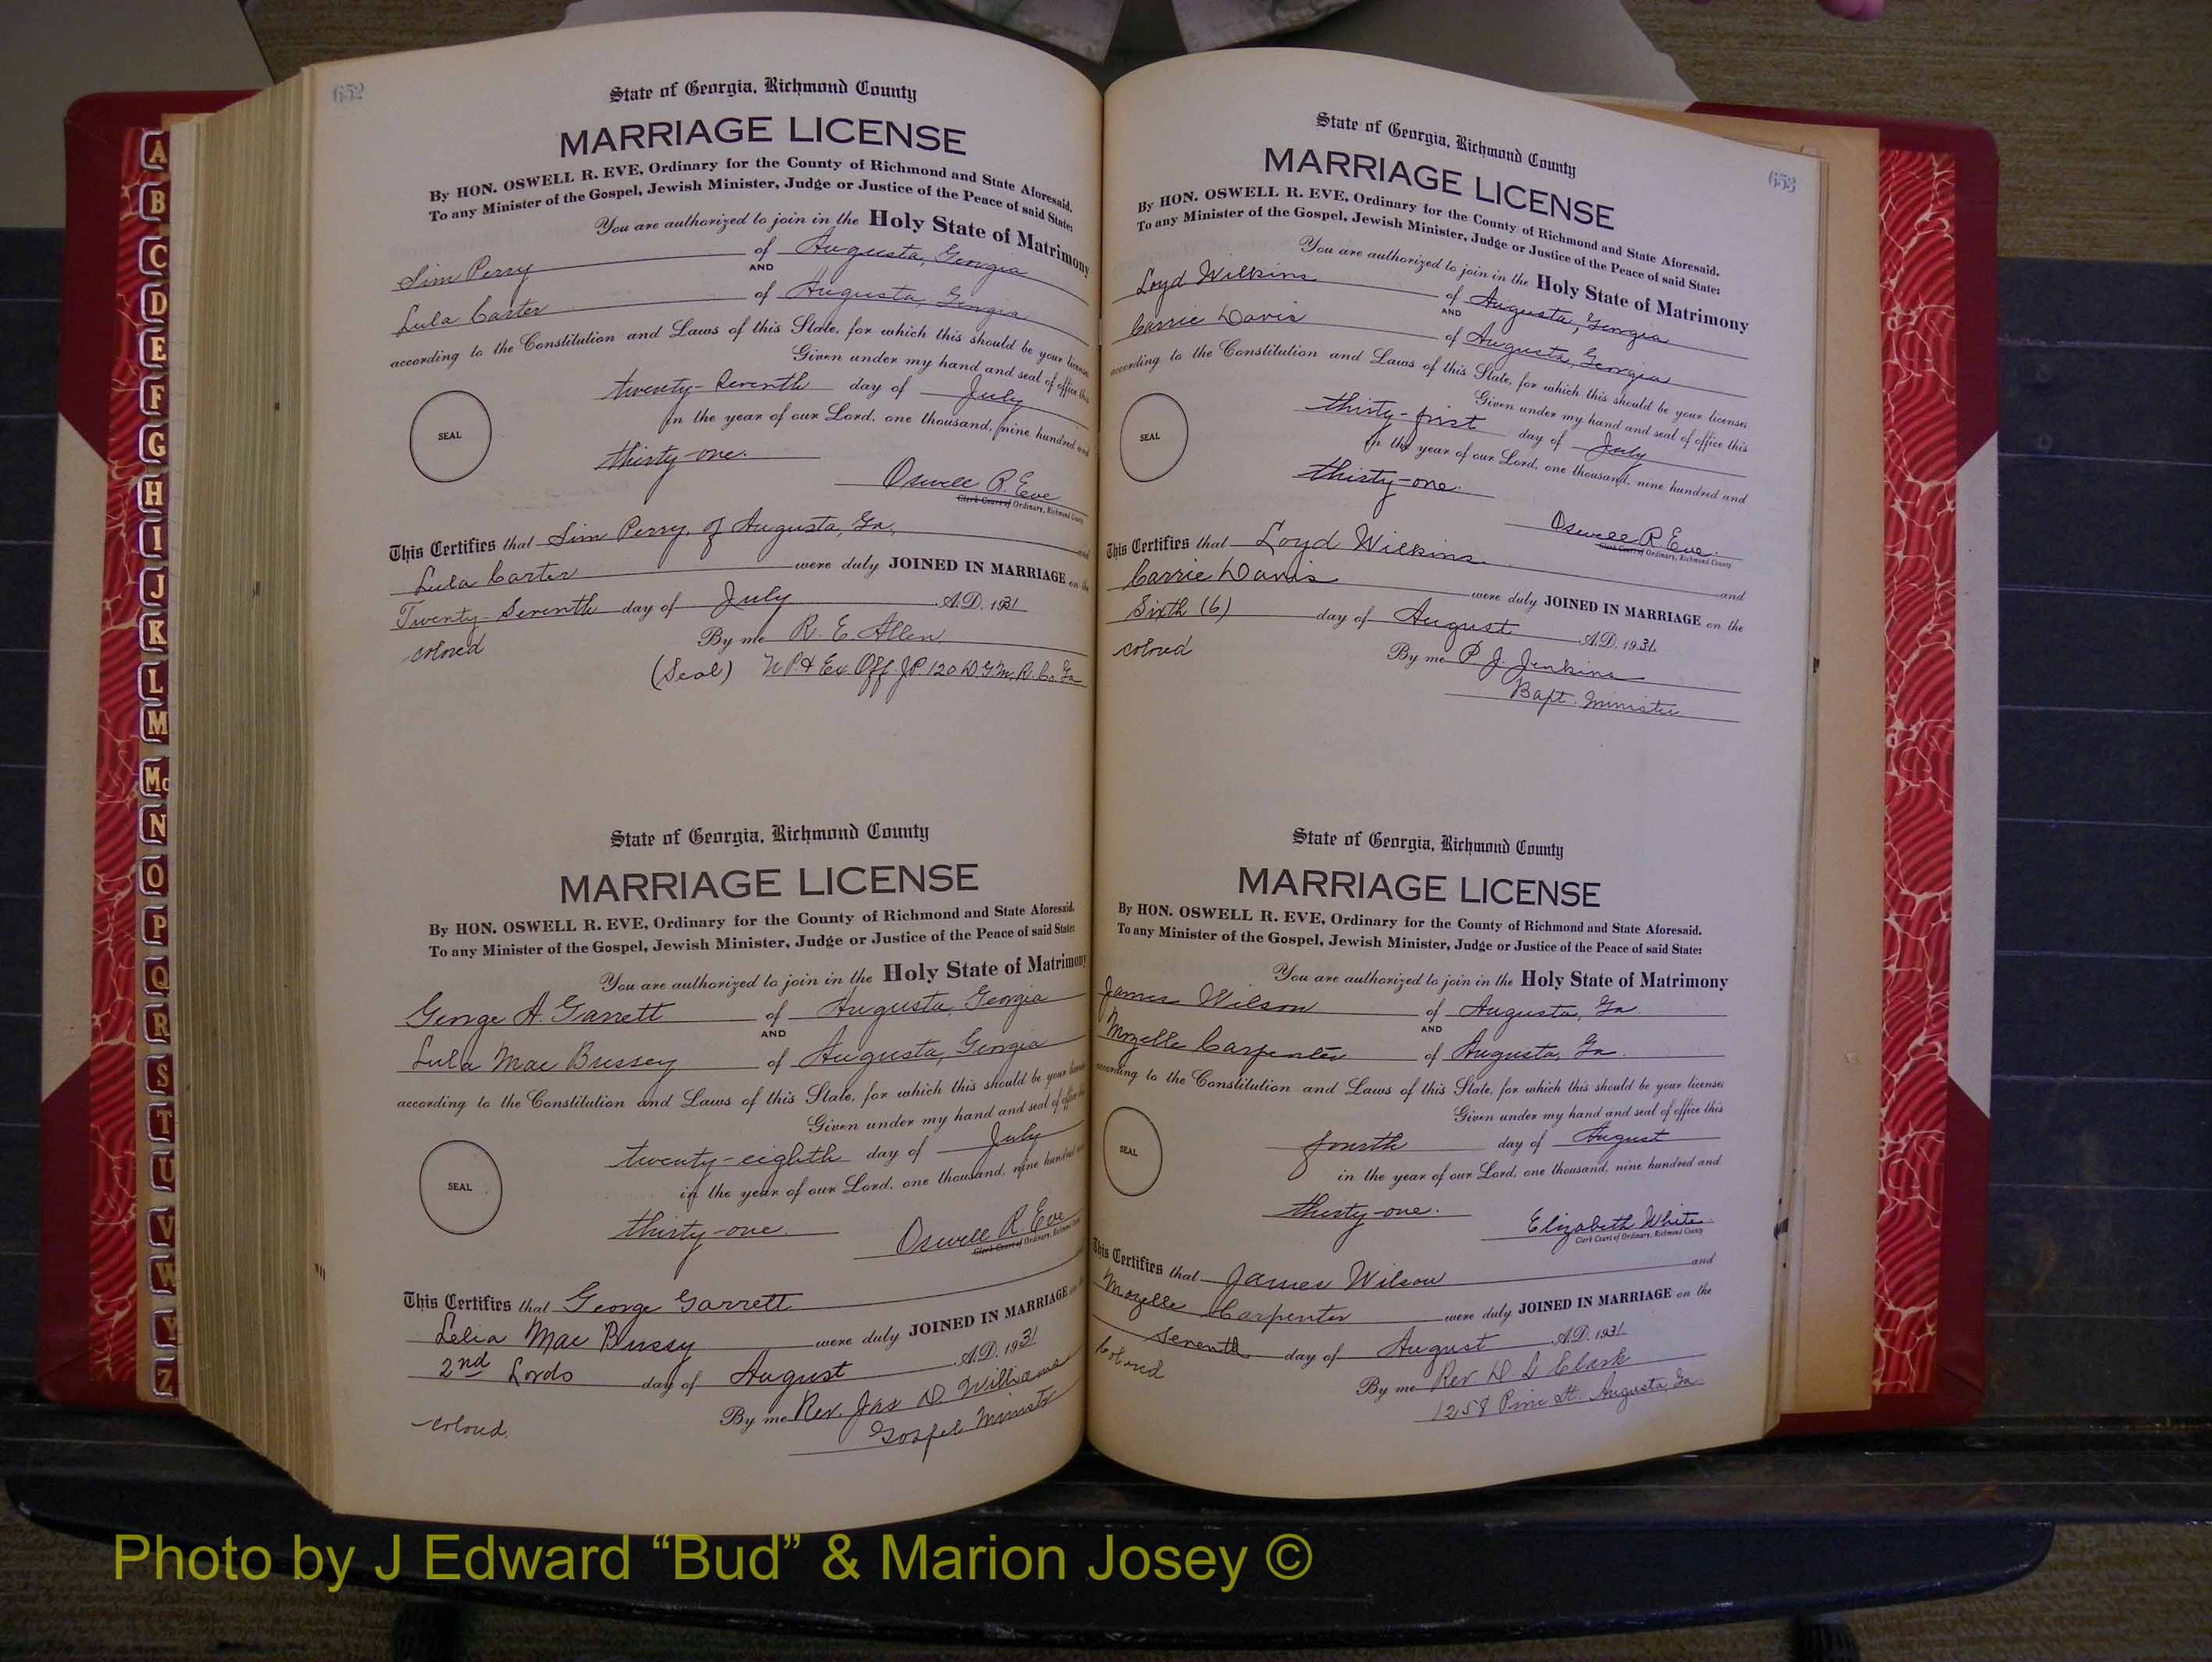 652
State of Georgia, Richmond County
MARRIAGE LICENSE
By HON. OSWELL R. EVE, Ordinary for the County of Richmond and State Aforesaid.
To any Minister of the Gospel, Jewish Minister, Judge or Justice of the Peace of said State:
You are authorized to join in the Holy State of Matrimony
Sim Perry of Augusta, Georgia
AND
Lula Carter of Augusta, Georgia
according to the Constitution and Laws of this State, for which this should be your license
Given under my hand and seal of office this
twenty-seventh day of July
SEAL
in the year of our Lord, one thousand, nine hundred and
thirty-one.
Oswell R. Eve
Clerk Court of Ordinary, Richmond County
This Certifies that Sim Perry, of Augusta, Ga, and
Lula Carter were duly JOINED IN MARRIAGE on the
Twenty-Seventh day of July A.D. 1931
colored By me R. E. Allen
(Seal) N P & Ex Off. J.P. 120 D. G. M. R. Co. Ga
State of Georgia, Richmond County
MARRIAGE LICENSE
By HON. OSWELL R. EVE, Ordinary for the County of Richmond and State Aforesaid.
To any Minister of the Gospel, Jewish Minister, Judge or Justice of the Peace of said State:
You are authorized to join in the Holy State of Matrimony
George A. Garrett of Augusta, Georgia
AND
Lula Mae Bussey of Augusta, Georgia
according to the Constitution and Laws of this State, for which this should be your license
Given under my hand and seal of office this
twenty-eighth day of July
SEAL
in the year of our Lord, one thousand, nine hundred and
thirty-one
Oswell R. Eve
Clerk Court of Ordinary, Richmond County
This Certifies that George Garrett and
Lelia Mae Bussy were duly JOINED IN MARRIAGE on the
2nd Lords day of August A.D. 1931
By me Rev. Jas D. Williams
colored. Gospel Minister
653
State of Georgia, Richmond County
MARRIAGE LICENSE
By HON. OSWELL R. EVE, Ordinary for the County of Richmond and State Aforesaid.
To any Minister of the Gospel, Jewish Minister, Judge or Justice of the Peace of said State:
You are authorized to join in the Holy State of Matrimony
Loyd Wilkins of Augusta, Georgia
AND
Carrie Davis of Augusta, Georgia
according to the Constitution and Laws of this State, for which this should be your license
Given under my hand and seal of office this
thirty-first day of July
SEAL
in the year of our Lord, one thousand, nine hundred and
thirty-one.
Oswell R. Eve.
Clerk Court of Ordinary, Richmond County
This Certifies that Loyd Wilkins and
Carrie Davis were duly JOINED IN MARRIAGE on the
Sixth (6) day of August A.D. 1931.
colored By me P. J. Jenkins
Bapt. Minister
State of Georgia, Richmond County
MARRIAGE LICENSE
By HON. OSWELL R. EVE, Ordinary for the County of Richmond and State Aforesaid.
To any Minister of the Gospel, Jewish Minister, Judge or Justice of the Peace of said State:
You are authorized to join in the Holy State of Matrimony
James Wilson of Augusta, Ga.
AND
Mozelle Carpenter of Augusta, Ga.
according to the Constitution and Laws of this State, for which this should be your license
Given under my hand and seal of office this
fourth day of August
SEAL
in the year of our Lord, one thousand, nine hundred and
thirty-one.
Elizabeth White
Clerk Court of Ordinary, Richmond County
This Certifies that James Wilson and
Mozelle Carpenter were duly JOINED IN MARRIAGE on the
Seventh day of August A.D. 1931
Colored By me Rev. D L Clark
1258 Pine St. Augusta, Ga
A
B
C
D
E
F
G
H
I
J
K
L
M
Mc
N
O
P
Q
R
S
T
U
V
W
Y
Z
Photo by J Edward “Bud” & Marion Josey ©